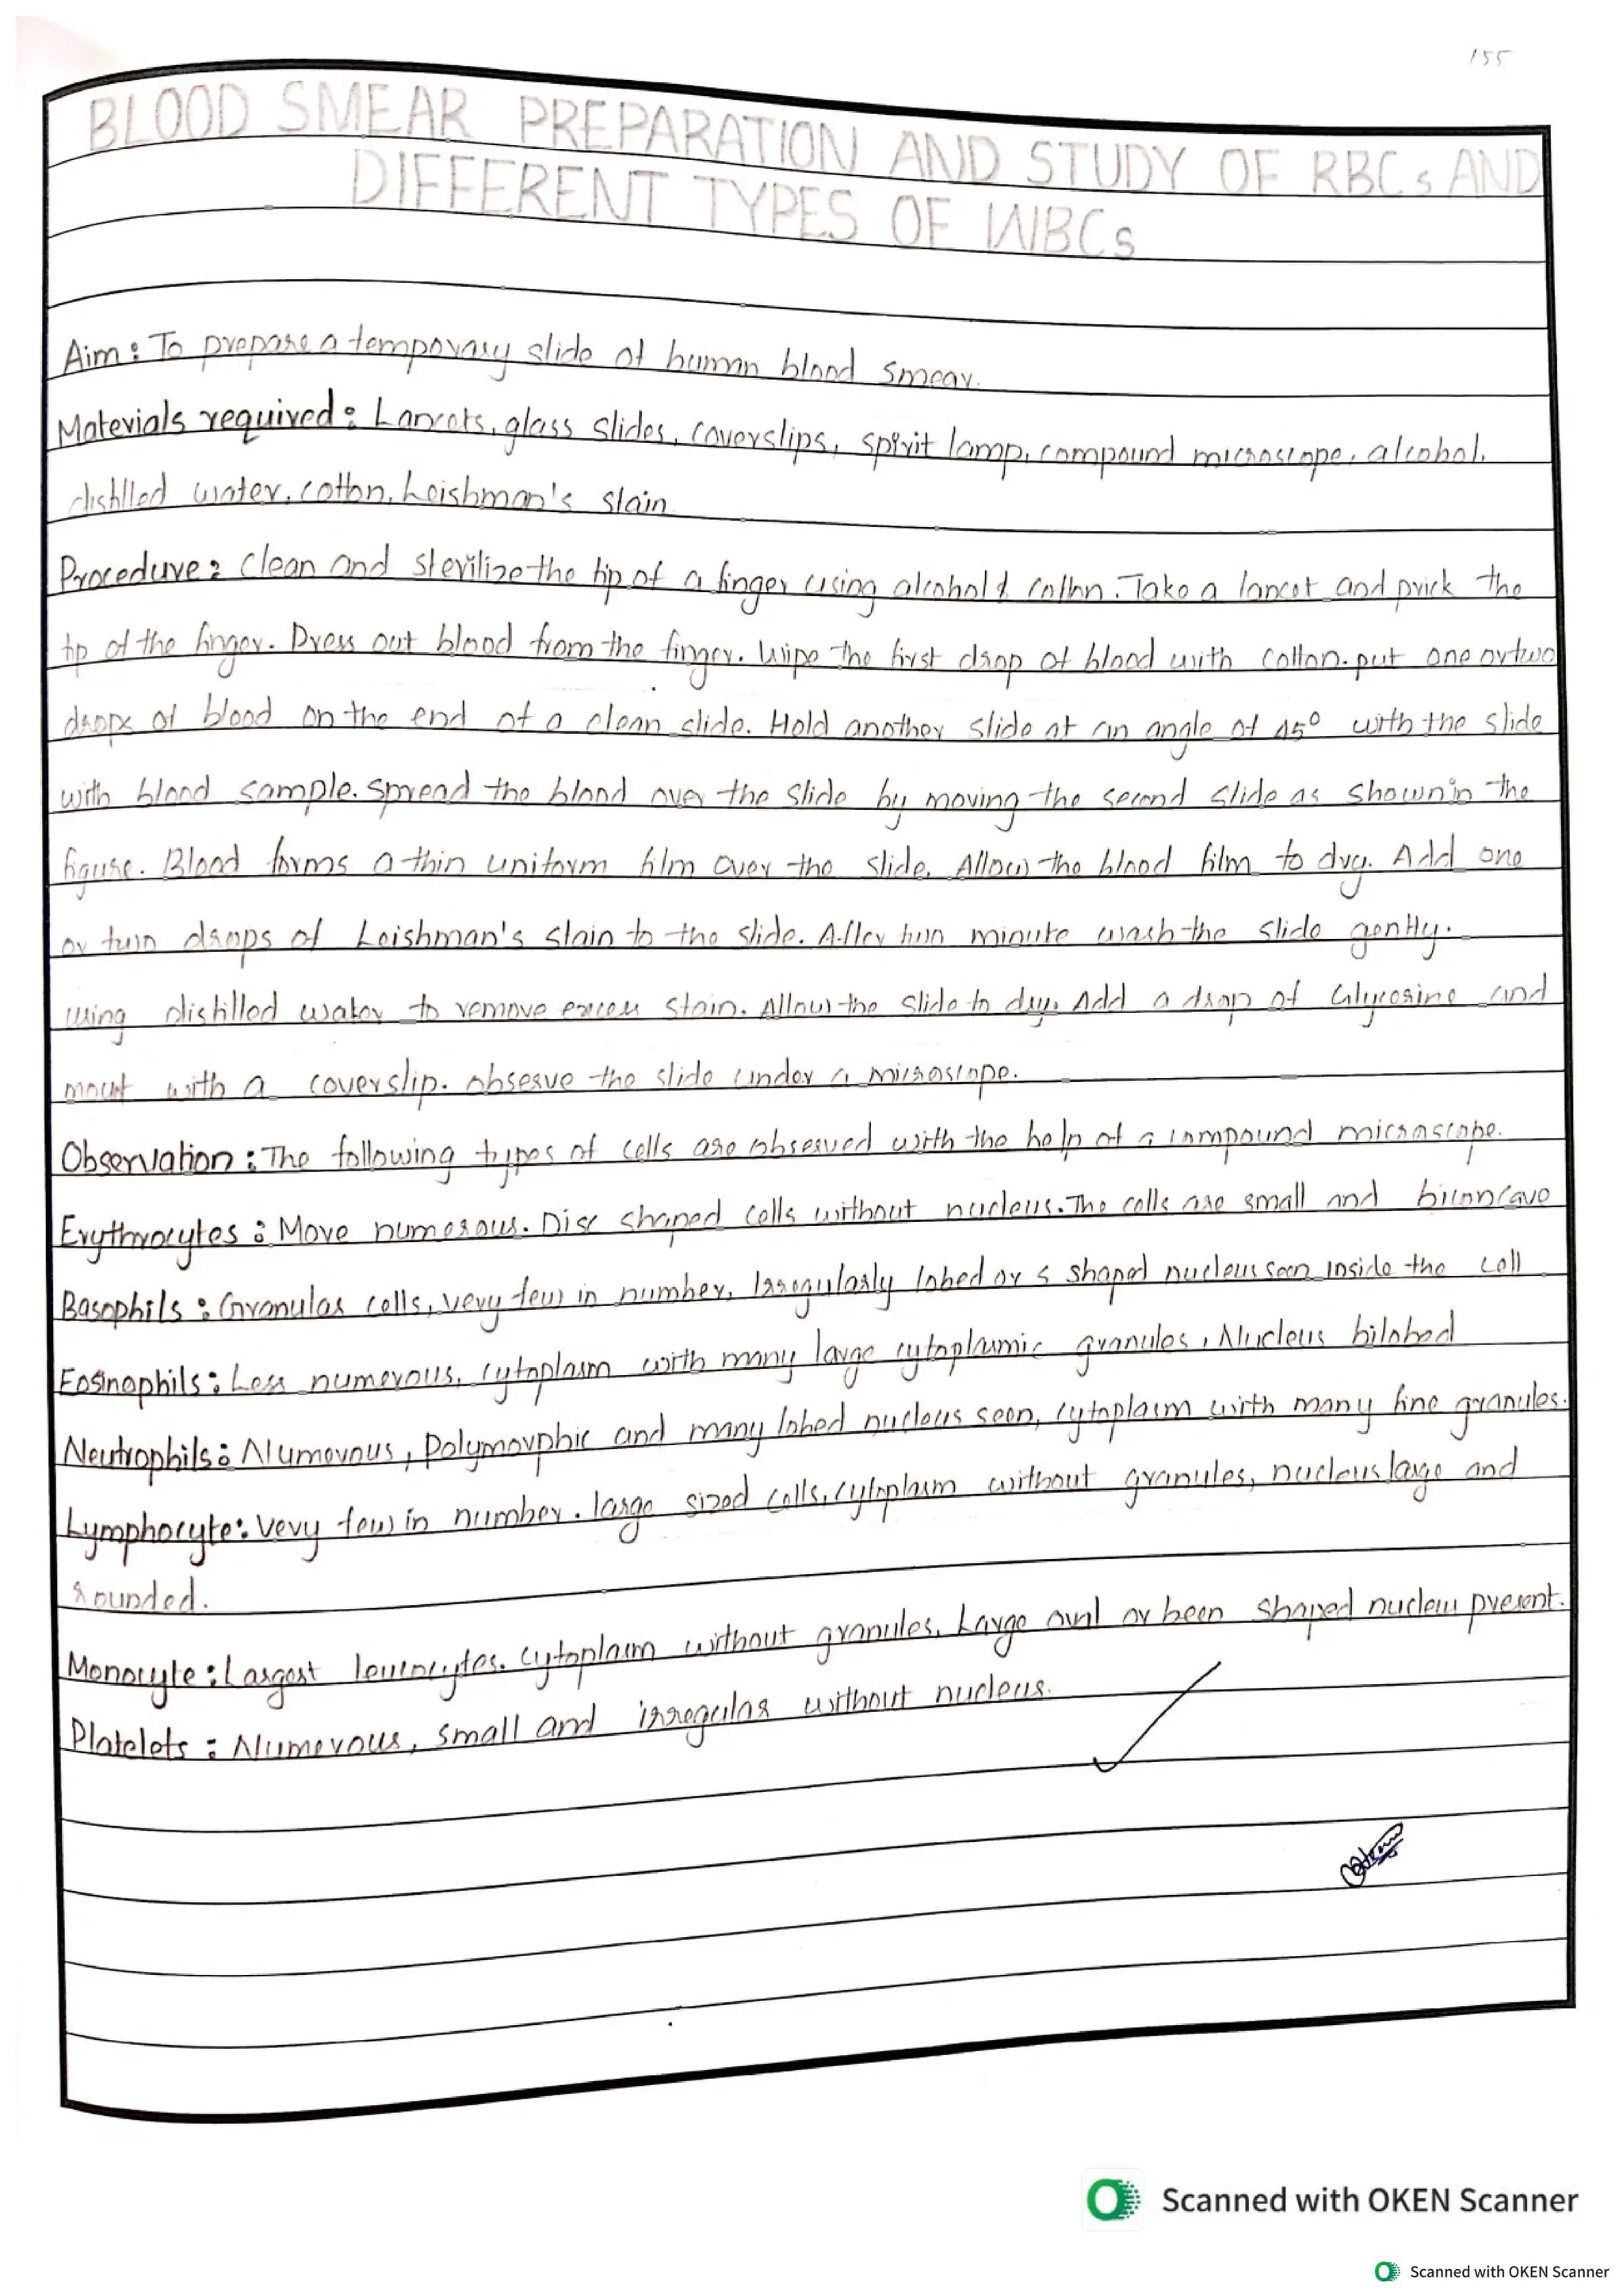 155
BLOOD SMEAR PREPARATION AND STUDY OF RBCs AND
DIFFERENT TYPES OF WBCs
Aim: To prepare a temporary slide of human blood smear.
Materials required: Lancets, glass slides, coverslips, spirit lamp, compound microscope, alcohol,
distilled water, cotton, Leishman's stain
Procedure: Clean and sterilize the tip of a finger using alcohol & cotton. Take a lancet and prick the
tip of the finger. Press out blood from the finger. Wipe the first drop of blood with cotton. put one or two
drops of blood on the end of a clean slide. Hold another slide at an angle of 45° with the slide
with blood sample. Spread the blood over the slide by moving the second slide as shown in the
figure. Blood forms a thin uniform film over the slide. Allow the blood film to dry. Add one
or two drops of Leishman's stain to the slide. After two minute wash the slide gently.
using distilled water to remove excess stain. Allow the slide to dry. Add a drop of Glycerine and
mount with a coverslip. observe the slide under a microscope.
Observation: The following types of cells are observed with the help of a compound microscope.
Erythrocytes: More numerous. Disc shaped cells without nucleus. The cells are small and biconcave
Basophils: Granular cells, very few in number, Irregularly lobed or S shaped nucleus seen inside the cell
Eosinophils: Less numerous, cytoplasm with many large cytoplasmic granules, Nucleus bilobed
Neutrophils: Numerous, Polymorphic and many lobed nucleus seen, cytoplasm with many fine granules.
Lymphocyte: Very few in number. large sized cells, cytoplasm without granules, nucleus large and
rounded.
Monocyte: Largest leucocytes. cytoplasm without granules. Large oval or been shaped nucleus present.
Platelets: Numerous, small and irregular without nucleus.
Scanned with OKEN Scanner
Scanned with OKEN Scanner